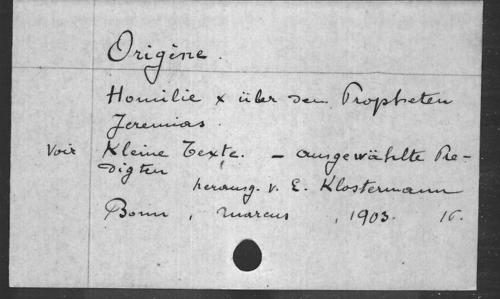 Origène.
Homilie x über den Propheten
Jeremias.
Voir Kleine Texte. - ausgewählte Pre-
digten
herausg. v. E. Klostermann
Bonn, Marcus, 1903. 16.